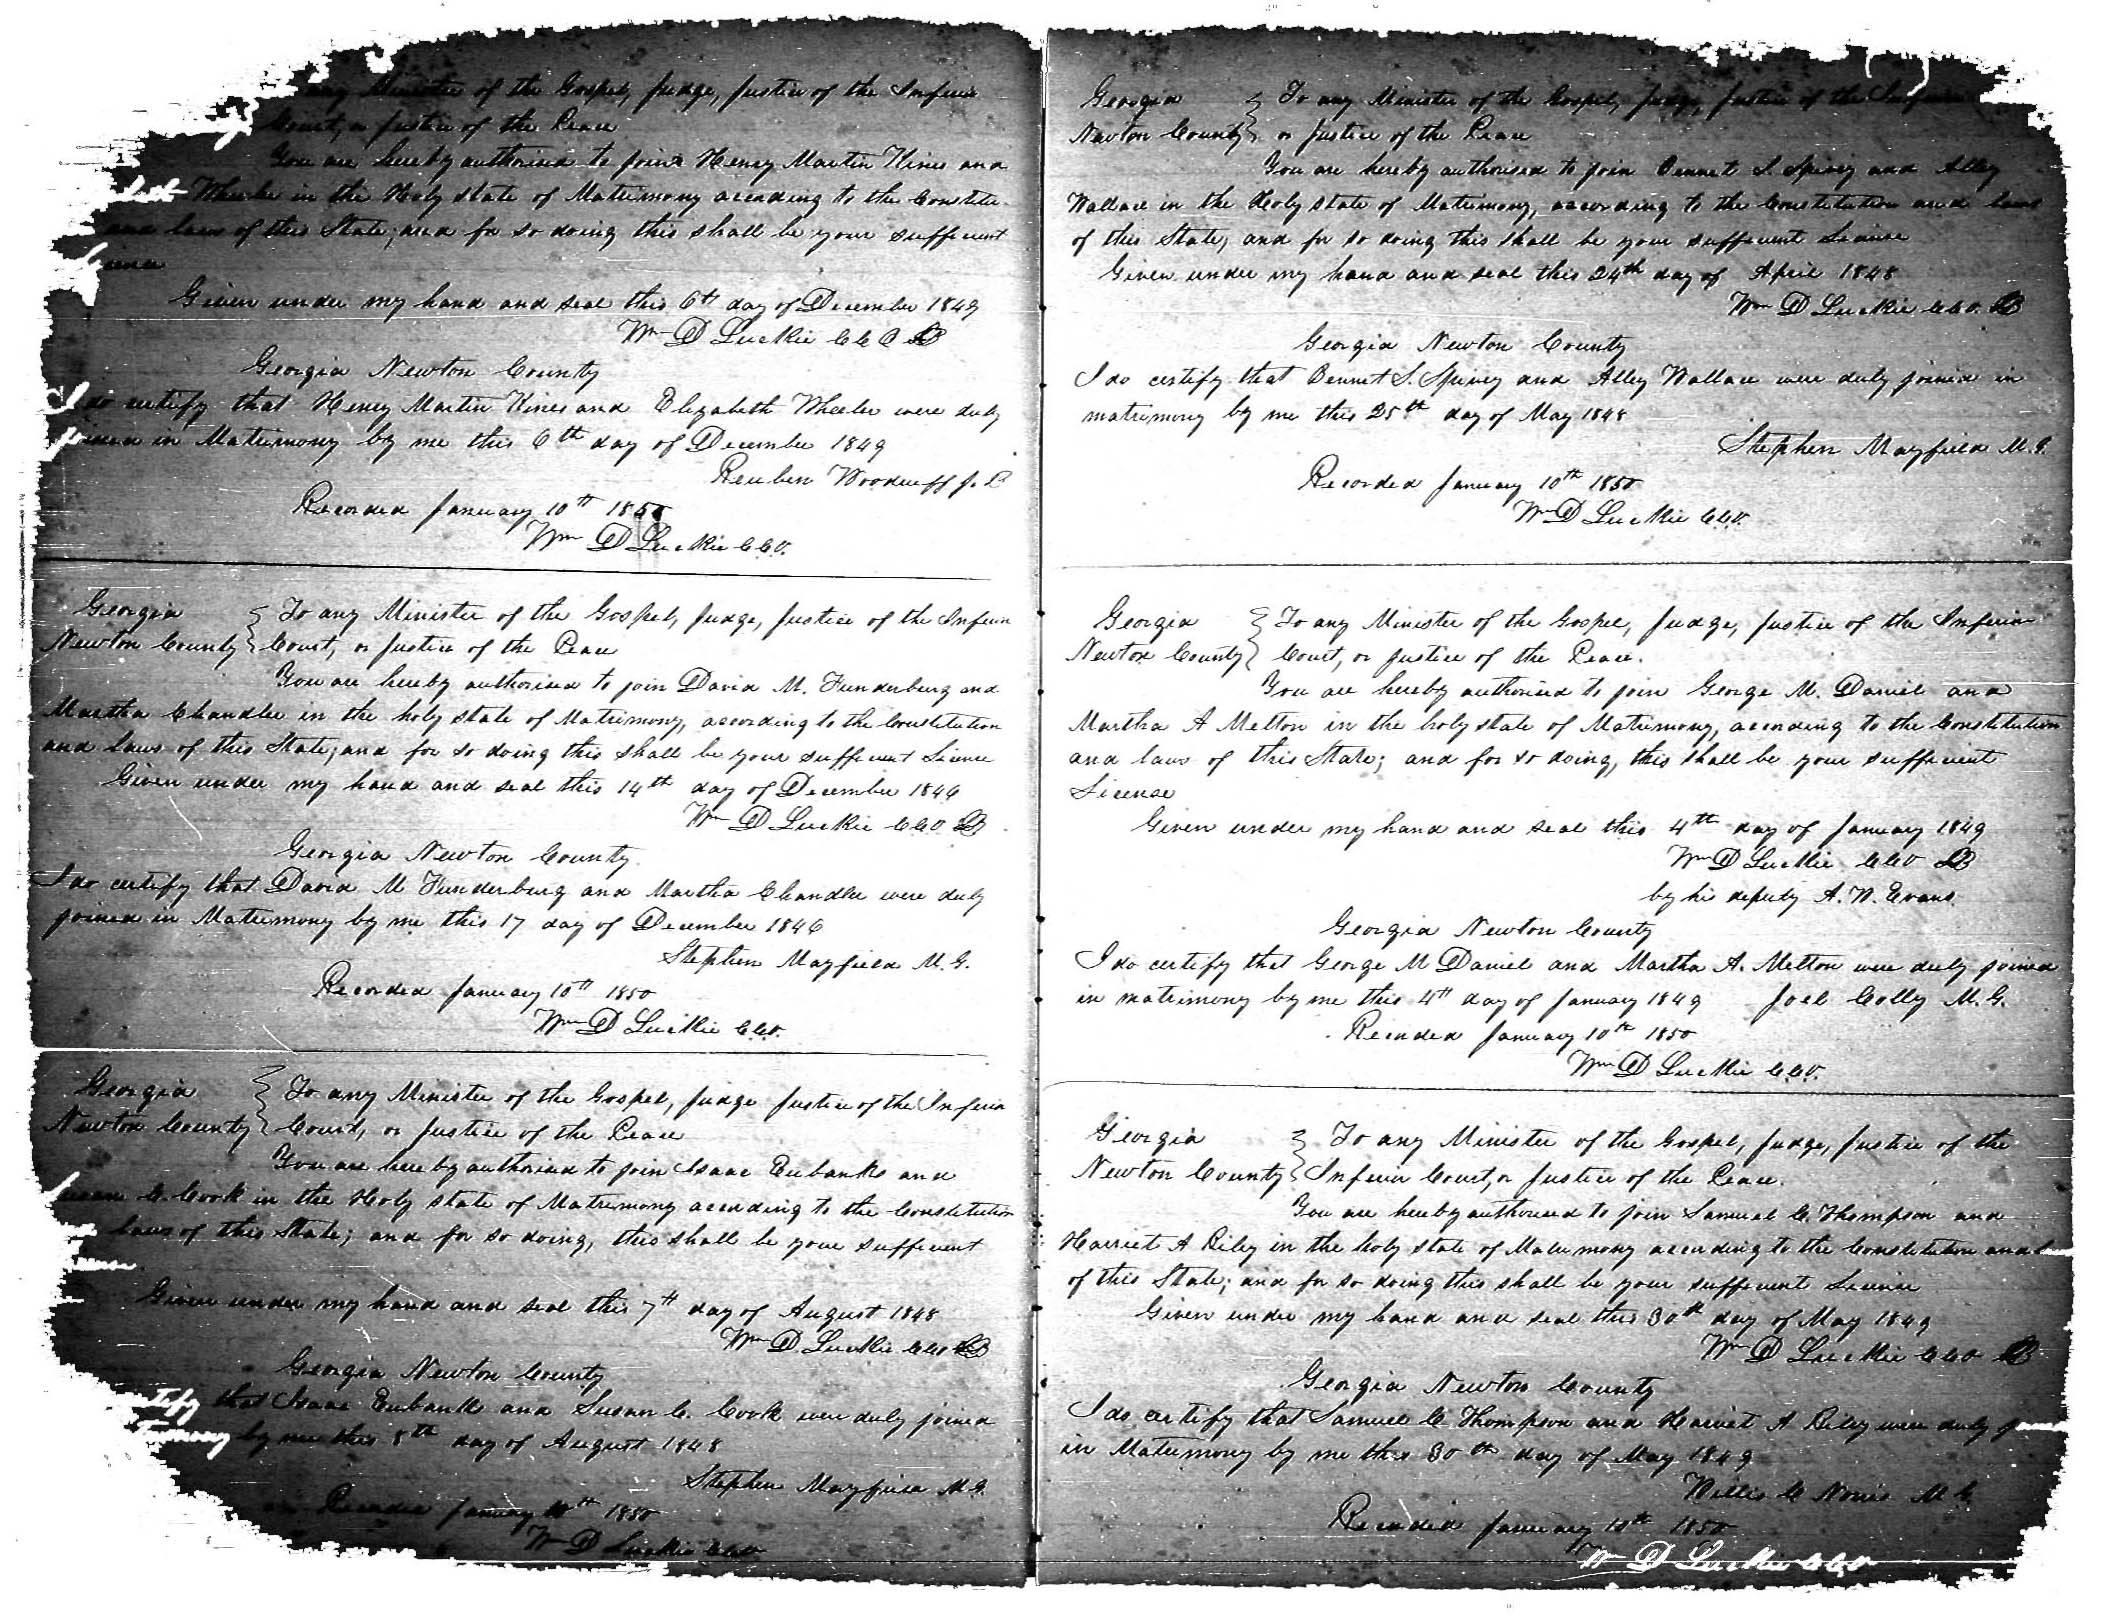 any Minister of the Gospel, Judge, Justice of the Inferior
Court, or Justice of the Peace
You are hereby authorised to join Henry Martin Hines and
Wheeler in the Holy state of Matrimony according to the Constitu-
and laws of this State; and for so doing this shall be your sufficient
Given under my hand and seal this 6th day of December 1849
Wm D Luckie CCO
Georgia Newton County
I do certify that Henry Martin Hines and Elizabeth Wheeler were duly
joined in Matrimony by me this 6th day of December 1849
Reuben Woodruff J. P
Recorded January 10th 1850
Wm D Luckie CCO.
Georgia } To any Minister of the Gospel, Judge, Justice of the Inferior
Newton County } Court, or Justice of the Peace
You are hereby authorised to join David M. Funderburg and
Martha Chandler in the holy state of Matrimony, according to the Constitution
and laws of this State; and for so doing this shall be your sufficient License
Given under my hand and seal this 14th day of December 1846
Wm D Luckie CCO
Georgia Newton County
I do certify that David M Funderburg and Martha Chandler were duly
joined in Matrimony by me this 17 day of December 1846
Stephen Mayfield M. G.
Recorded January 10th 1850
Wm D Luckie CCO.
Georgia } To any Minister of the Gospel, Judge Justice of the Inferior
Newton County } Court, or Justice of the Peace
You are hereby authorised to join Isaac Eubanks and
Susan C. Cook in the Holy state of Matrimony according to the Constitution
laws of this State; and for so doing, this shall be your sufficient
Given under my hand and seal this 7th day of August 1848
Wm D Luckie CCO
Georgia Newton County
that Isaac Eubanks and Susan C. Cook were duly joined
by me this 8th day of August 1848
Stephen Mayfield M. G.
Recorded January 10th 1850
Wm D Luckie CCO.
Georgia } To any Minister of the Gospel, Judge, Justice of the Inferior
Newton County } or Justice of the Peace
You are hereby authorised to join Bennet S. Spivey and Alley
Wallace in the Holy state of Matrimony, according to the Constitution and laws
of this State, and for so doing this shall be your sufficient License
Given under my hand and seal this 24th day of April 1848
Wm D Luckie CCO.
Georgia Newton County
I do certify that Bennet S. Spivey and Alley Wallace were duly joined in
matrimony by me this 25th day of May 1848
Stephen Mayfield M. G.
Recorded January 10th 1850
Wm D Luckie CCO.
Georgia } To any Minister of the Gospel, Judge, Justice of the Inferior
Newton County } Court, or Justice of the Peace.
You are hereby authorised to join George M. Daniel and
Martha A Melton in the holy state of Matrimony, according to the Constitution
and laws of this State; and for so doing, this shall be your sufficient
License
Given under my hand and seal this 4th day of January 1849
Wm D Luckie CCO
by his deputy A. N. Evans.
Georgia Newton County
I do certify that George M Daniel and Martha A. Melton were duly joined
in matrimony by me this 4th day of January 1849 Joel Colly M. G.
Recorded January 10th 1850
Wm D Luckie CCO.
Georgia } To any Minister of the Gospel, Judge, Justice of the
Newton County } Inferior Court, or Justice of the Peace.
You are hereby authorised to join Samuel C. Thompson and
Harriet A Riley in the holy state of Matrimony according to the Constitution and
of this State; and for so doing this shall be your sufficient License
Given under my hand and seal this 30th day of May 1849
Wm D Luckie CCO
Georgia Newton County
I do certify that Samuel C Thompson and Harriet A Riley were duly joined
in Matrimony by me this 30th day of May 1849
Willis C Norris M G
Recorded January 10th 1850
Wm D Luckie CCO